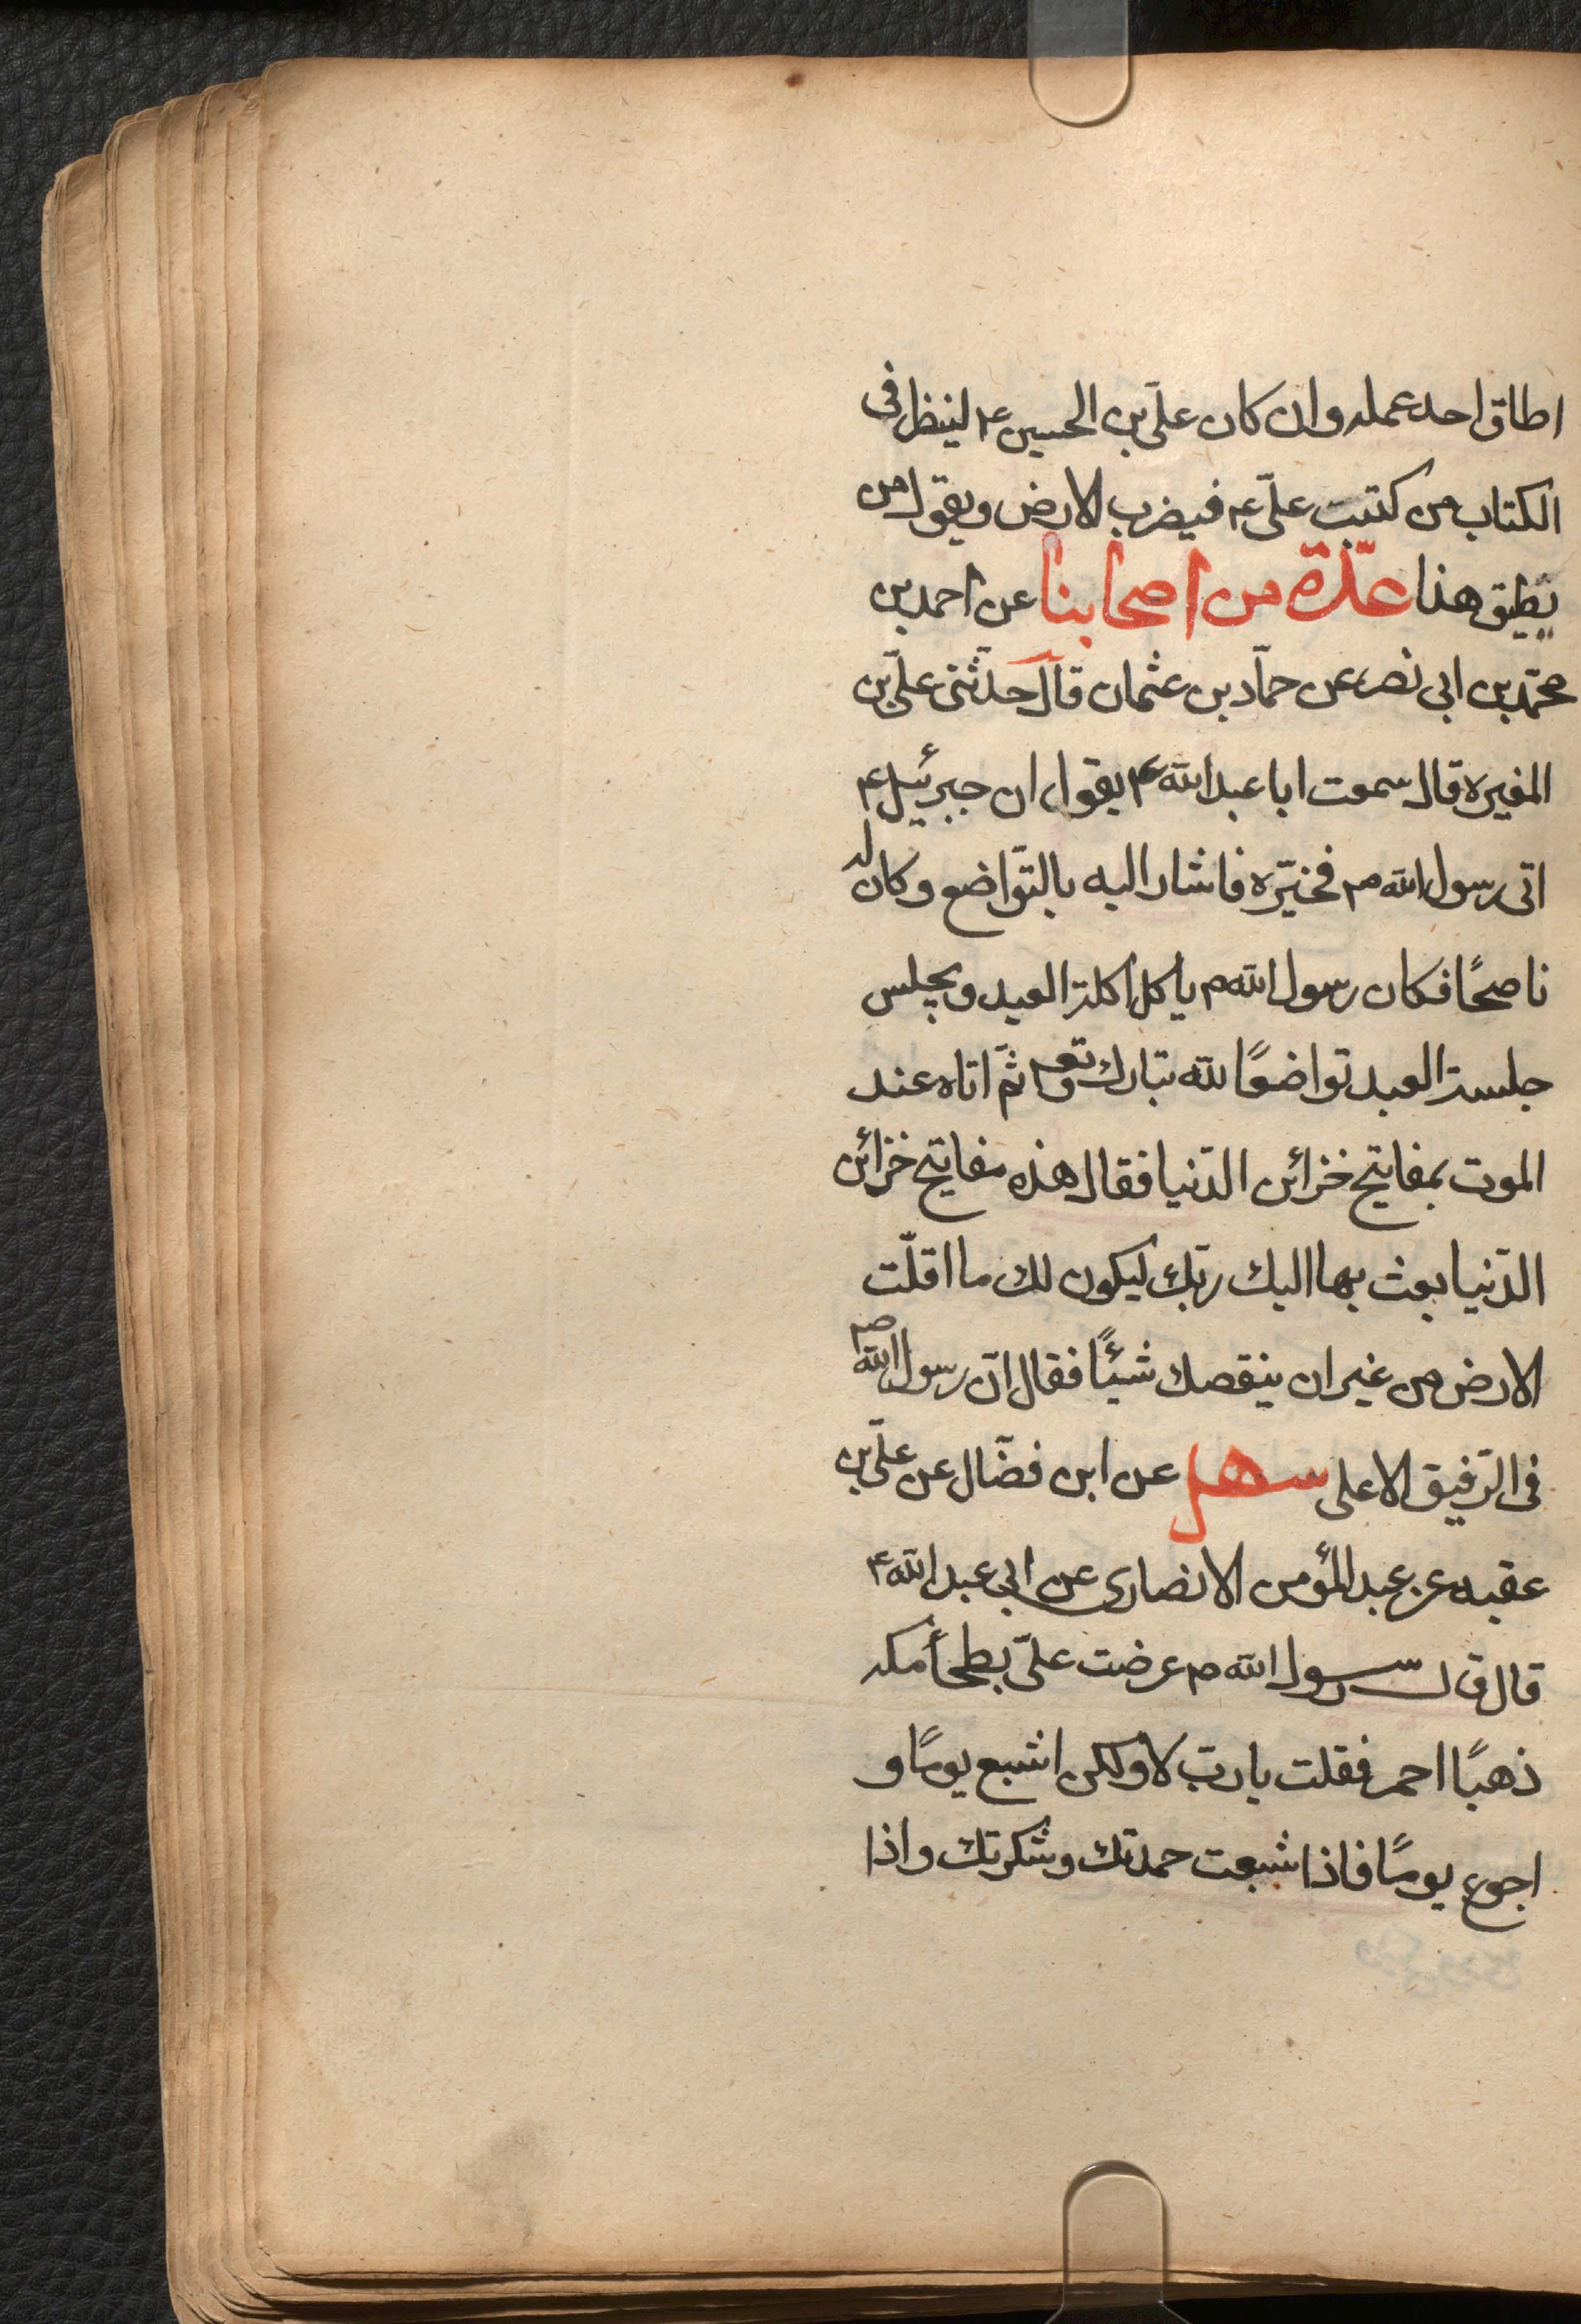 اطاق احد عمله وان كان علىّ بن الحسين ع لينظر فى
الكتاب من كتب علىّ ع فيضرب الارض ويقول من
يطيق هذا عدّة من اصحابنا عن احمد بن
محمّد بن ابى نصر عن حمّاد بن عثمان قال حدّثنى علىّ بن
المغيره قال سمعت ابا عبد الله ع يقول ان جبرئيل ع
اتى رسول الله ص فخيّره فاشار اليه بالتّواضع وكان له
ناصحًا فكان رسول الله ص ياكل اكلة العبد ويجلس
جلسة العبد تواضعًا لله تبارك وتع ثمّ اتاه عند
الموت بمفاتيح خزائن الدّنيا فقال هذه مفاتيح خزائن
الدّنيا بعث بها اليك ربّك ليكون لك ما اقلّت
الارض من غير ان ينقصك شيئًا فقال انّ رسول الله ص
فى الرّفيق الاعلى سهل عن ابن فضّال عن علىّ بن
عقبه عن عبد المؤمن الانصارى عن ابى عبد الله ع
قال قال رسول الله ص عرضت علىّ بطحأ مكه
ذهبًا احمر فقلت يا ربّ لا ولكن اشبع يومًا و
اجوع يومًا فاذا شبعت حمدتك وشكرتك واذا